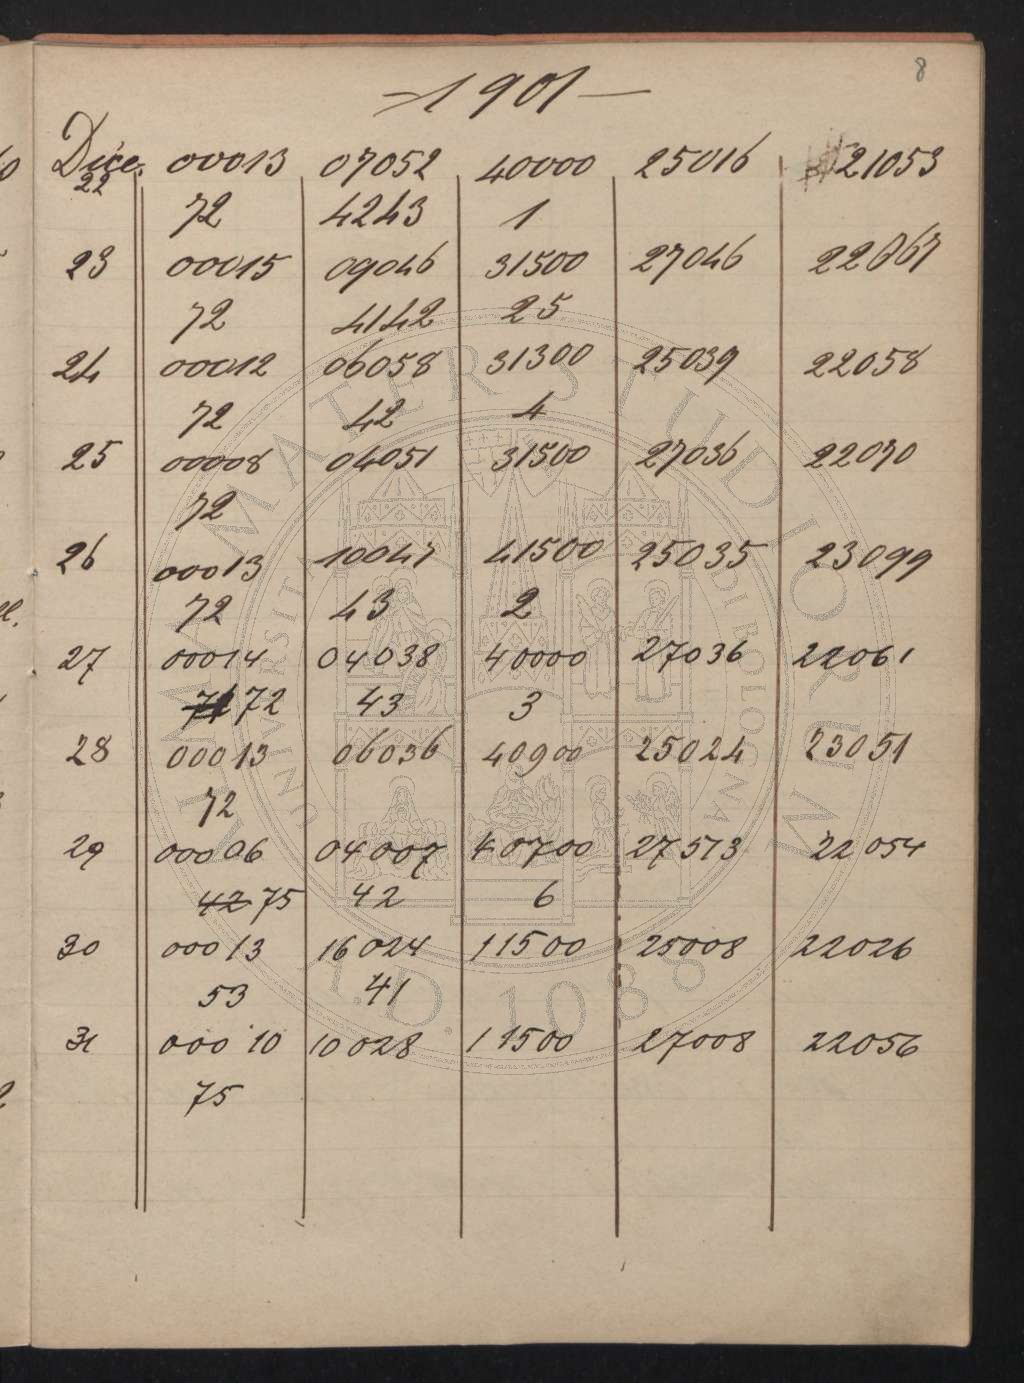 8
1901
Dice. 00013 07052 40000 25016 21053
22
72 4243 1
23 00015 09046 31500 27046 22067
72 4142 25
24 00012 06058 31300 25039 22058
72 42 4
25 00008 04051 31500 27036 22070
72
26 00013 10047 41500 25035 23099
72 43 2
27 00014 04038 40000 27036 22061
72 43 3
28 00013 06036 40900 25024 23051
72
29 00006 04007 40700 27513 22054
42 75 42 6
30 00013 16024 11500 25008 22026
53 41
31 00010 10028 11500 27008 22056
75
ALMA MATER STUDIORUM
UNIVERSITÀ DI BOLOGNA
A.D. 1088